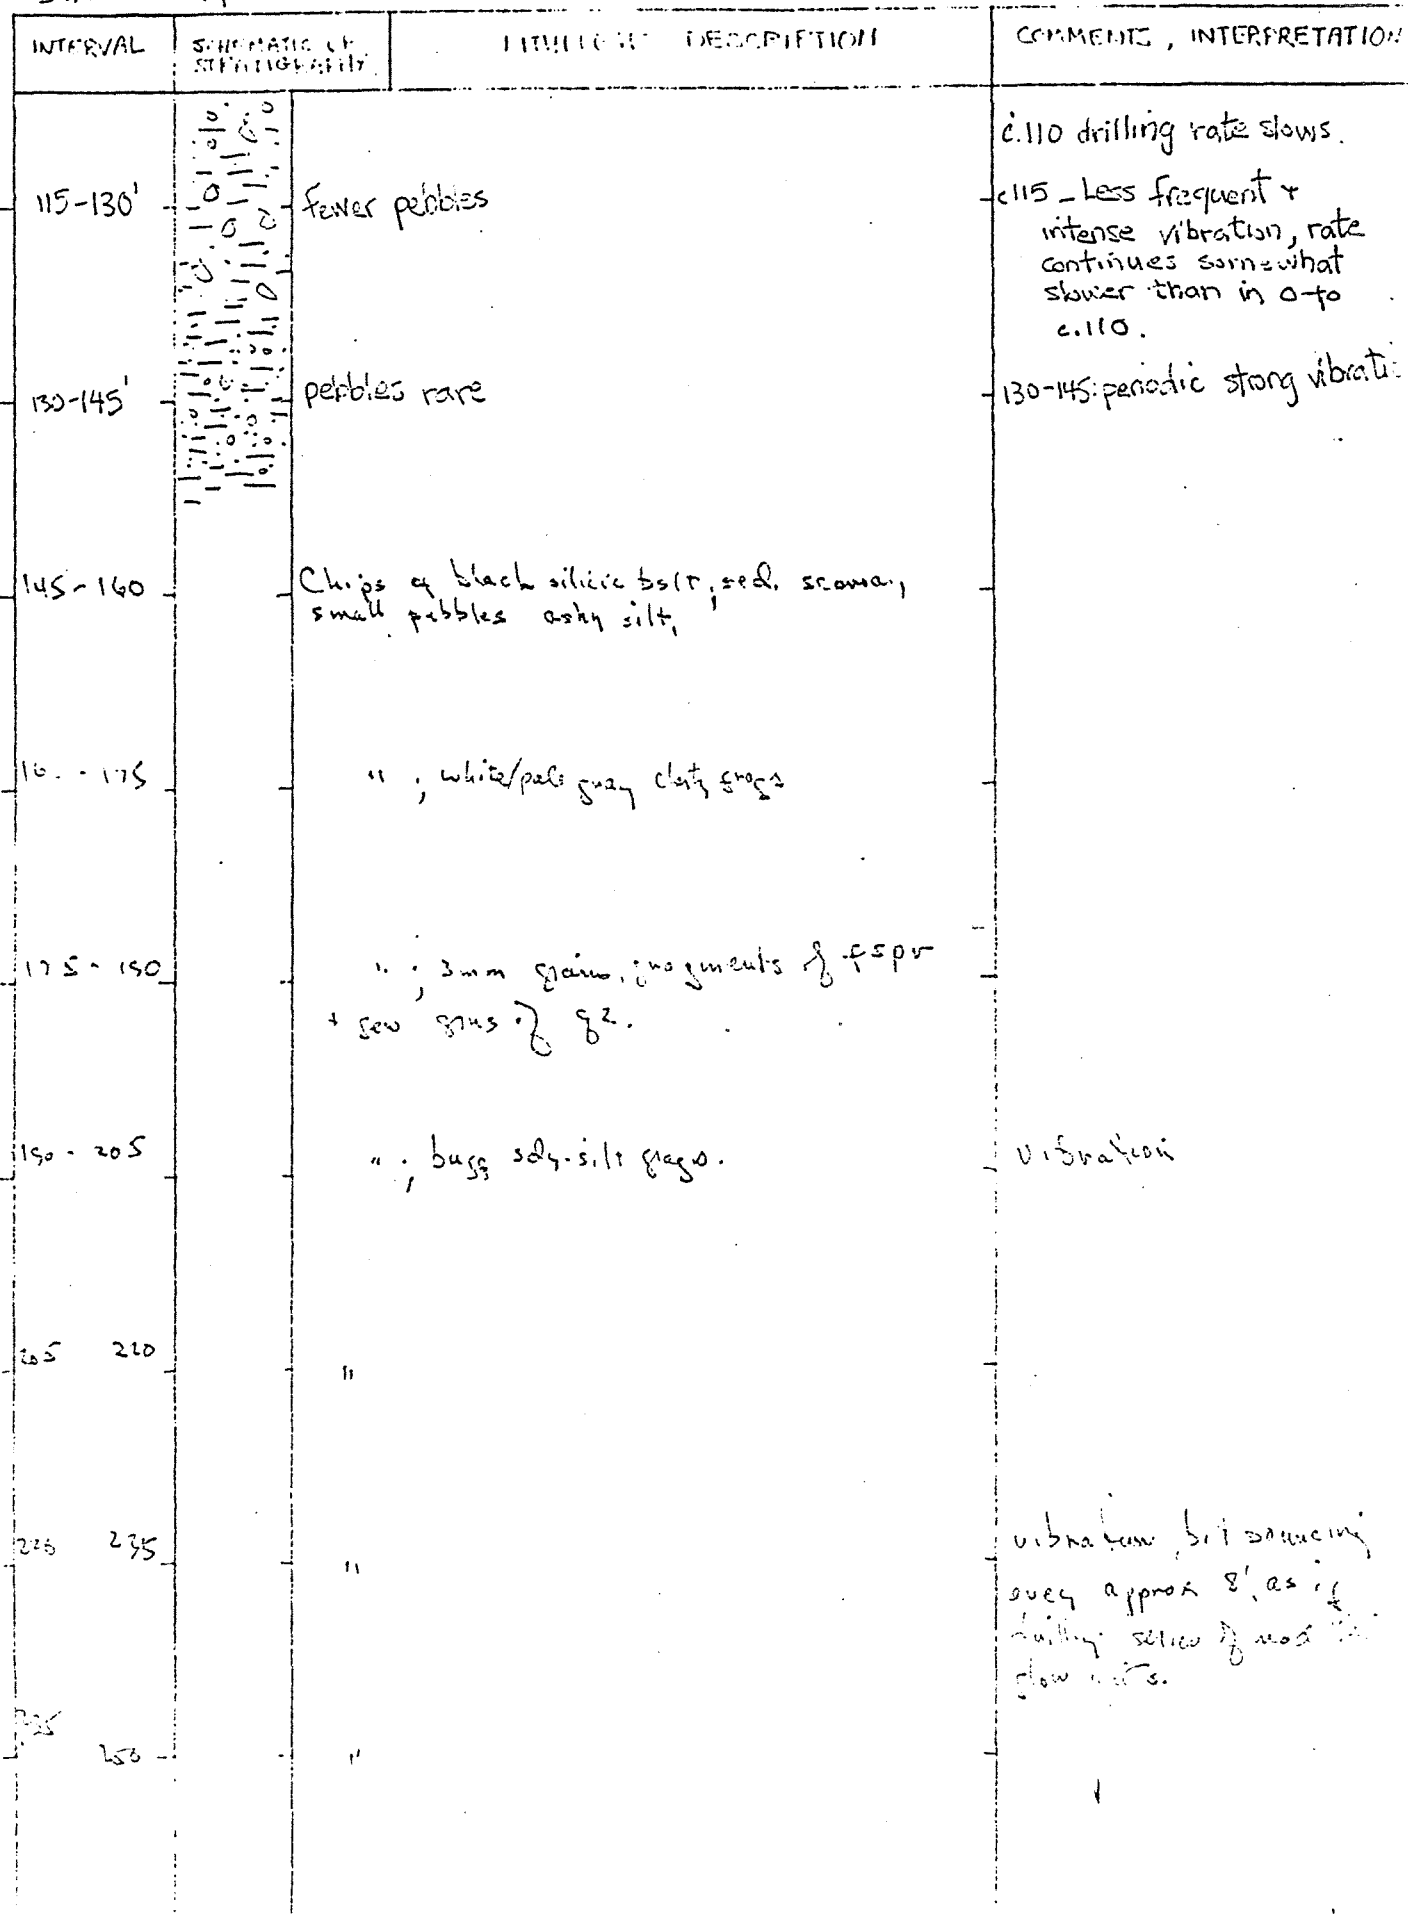 INTERVAL
SCHEMATIC OF
STRATIGRAPHY
DESCRIPTION
COMMENTS, INTERPRETATION
c.110 drilling rate slows.
115-130'
Fewer pebbles
c115 - Less frequent +
intense vibration, rate
continues somewhat
slower than in 0 to
c.110.
130-145'
pebbles rare
130-145: periodic strong
145-160
Chips of black silicic bslt; red. scoria,
small pebbles ashy silt,
- 175
" ; white/pale gray frags
175 - 190
" ; 3mm grains, fragments of fspr
+ few grns of qz.
190 - 205
" ; sdy-silt frags.
vibration
205 220
"
235
"
vibration, bit bouncing
every approx 8', as if
drilling series of
flow
235
250
"